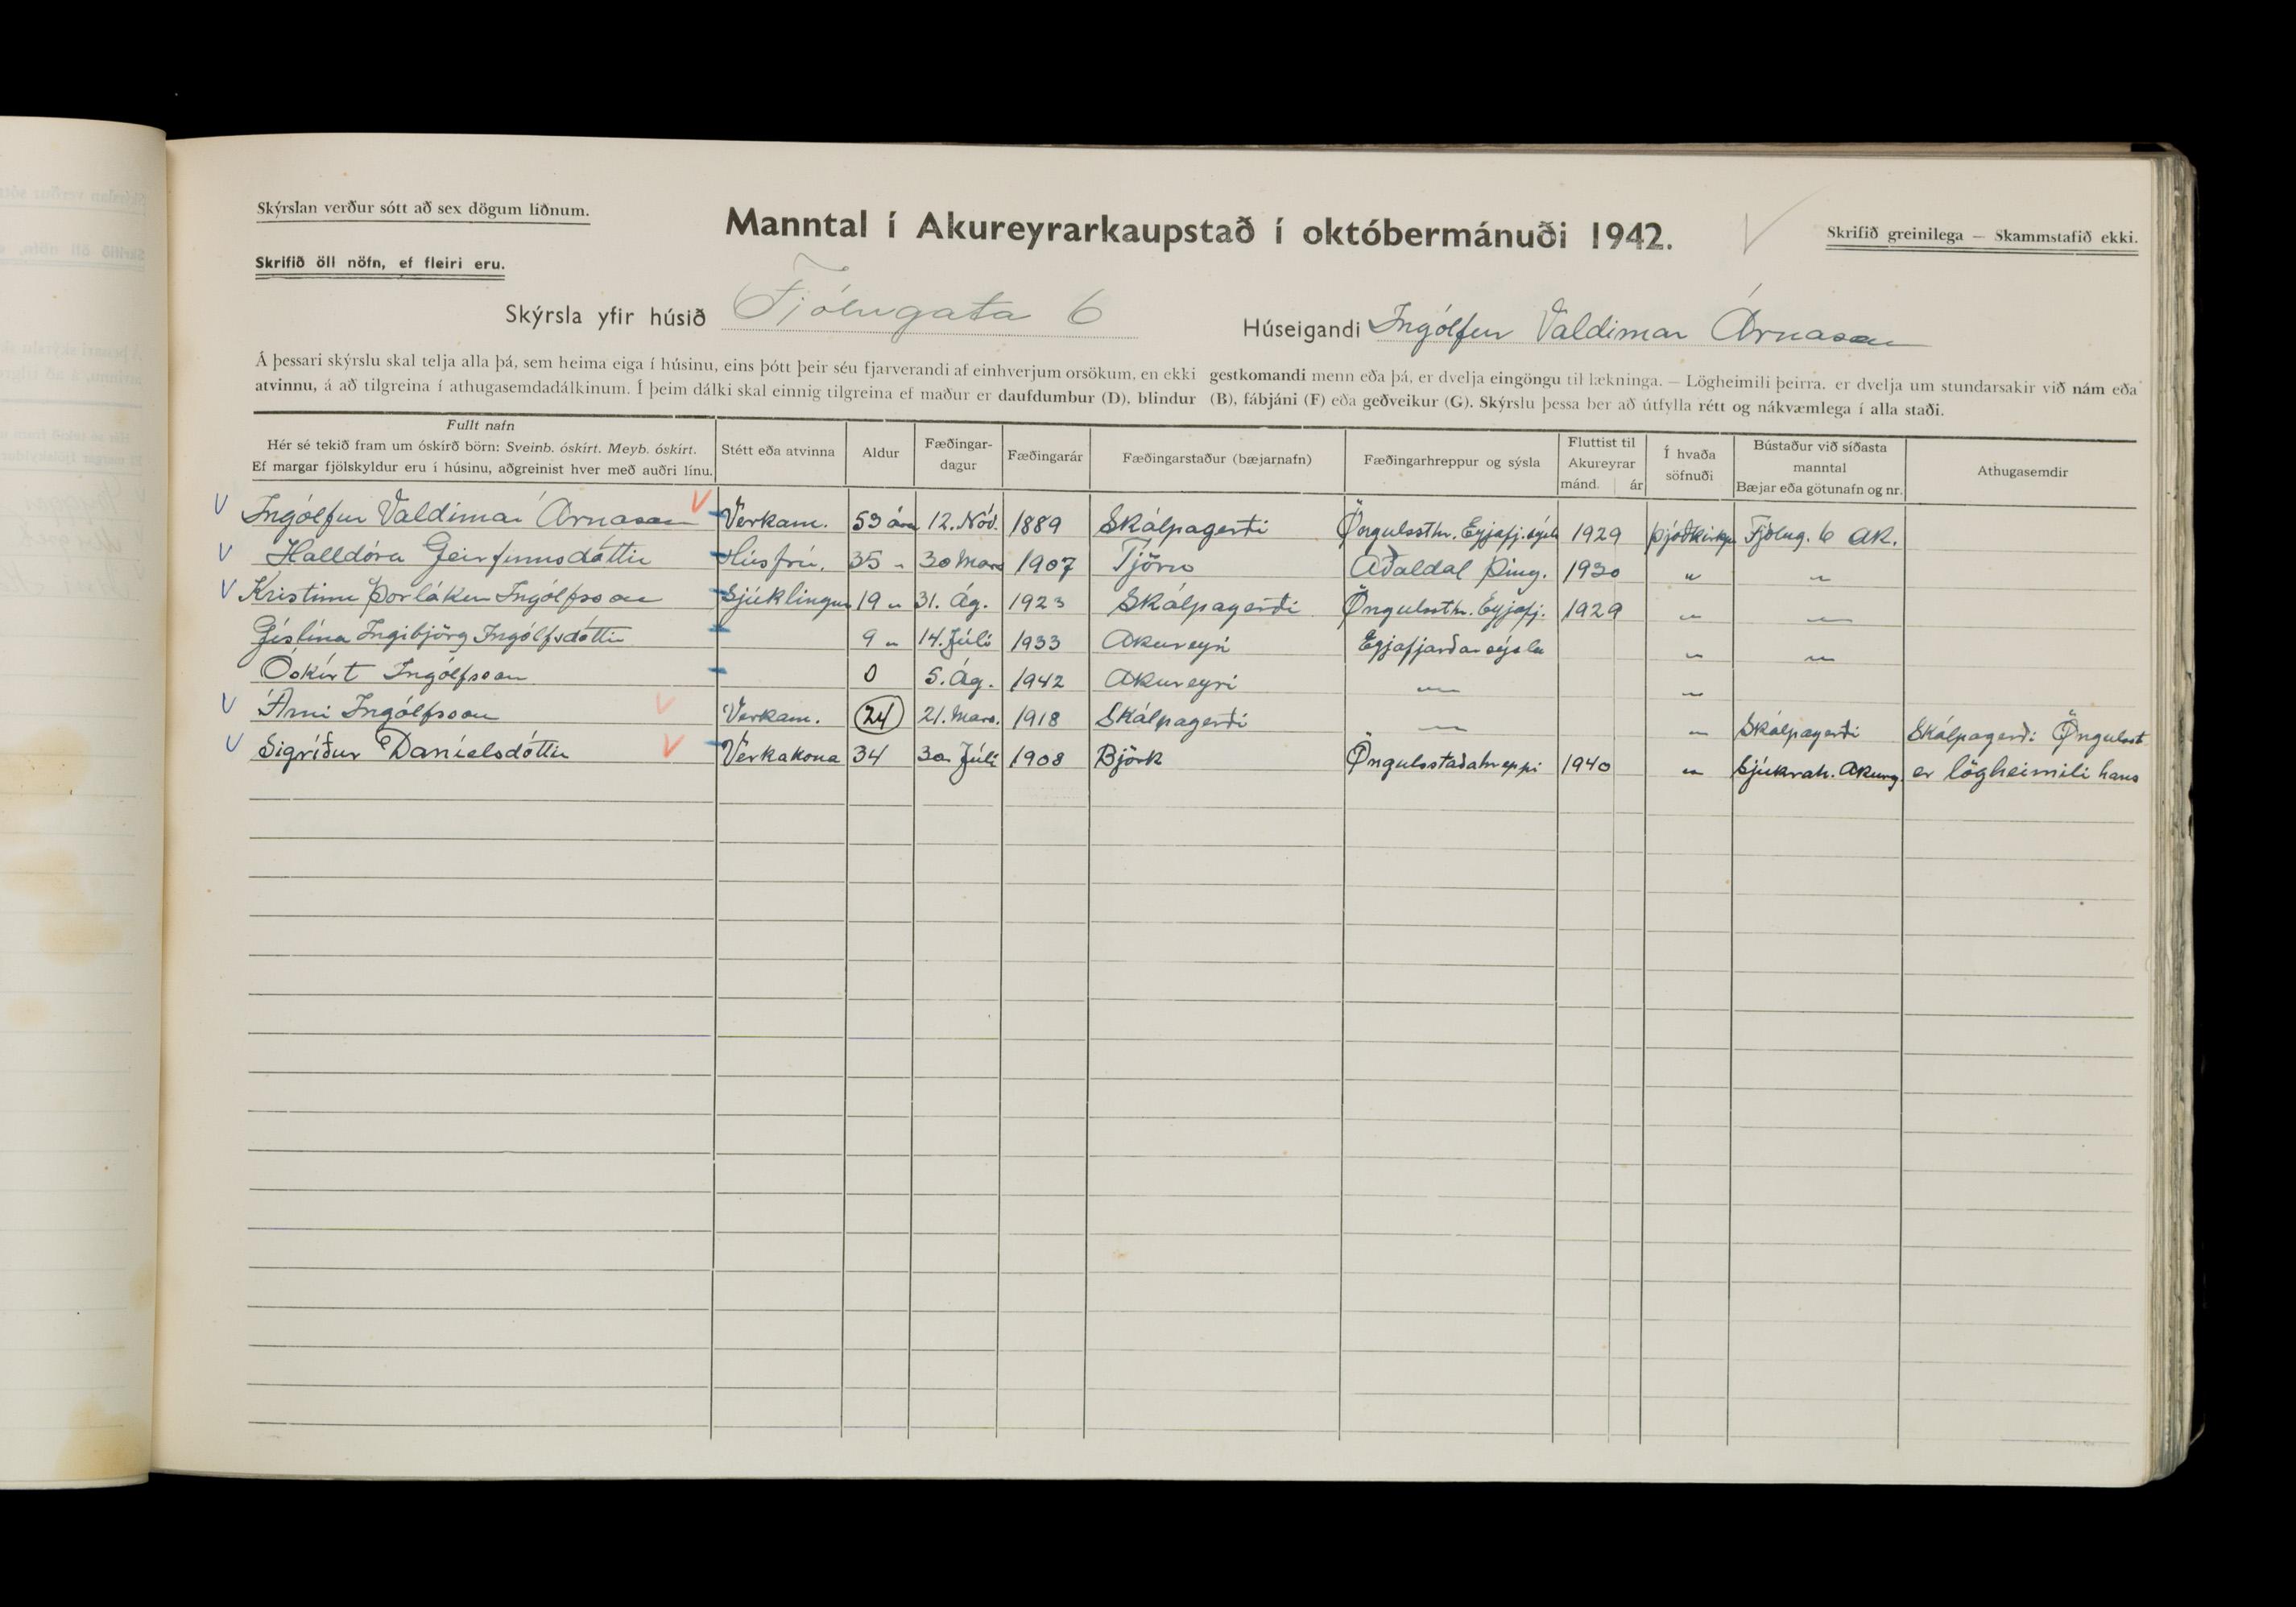 Skýrslan verður sótt að sex dögum liðnum.
Manntal í Akureyrarkaupstað í októbermánuði 1942.
Skrifið greinilega — Skammstafið ekki.
Skrifið öll nöfn, ef fleiri eru.
Skýrsla yfir húsið Fjólugata 6
Húseigandi Ingólfur Valdimar Árnason
Á þessari skýrslu skal telja alla þá, sem heima eiga í húsinu, eins þótt þeir séu fjarverandi af einhverjum orsökum, en ekki gestkomandi menn eða þá, er dvelja eingöngu til lækninga. — Lögheimili þeirra. er dvelja um stundarsakir við nám eða
atvinnu, á að tilgreina í athugasemdadálkinum. Í þeim dálki skal einnig tilgreina ef maður er daufdumbur (D), blindur (B), fábjáni (F) eða geðveikur (G). Skýrslu þessa ber að útfylla rétt og nákvæmlega í alla staði.
Fullt nafn
Hér sé tekið fram um óskírð börn: Sveinb. óskírt. Meyb. óskírt.
Ef margar fjölskyldur eru í húsinu, aðgreinist hver með auðri línu.
Stétt eða atvinna
Aldur
Fæðingar-
dagur
Fæðingarár
Fæðingarstaður (bæjarnafn)
Fæðingarhreppur og sýsla
Fluttist til
Akureyrar
mánd. ár
Í hvaða
söfnuði
Bústaður við síðasta
manntal
Bæjar eða götunafn og nr.
Athugasemdir
V Ingólfur Valdimar Árnason V Verkam. 53 ára 12. Nóv. 1889 Skálpagerði Öngulssthr. Eyjafj.sýsla 1929 Þjóðkirkju Fjólug. 6 Ak.
V Halldóra Geirfinnsdóttir Húsfrú. 35 " 30 Mars 1907 Tjörn Aðaldal Þing. 1930 " "
V Kristinn Þorlákur Ingólfsson Sjúklingur 19 " 31. Ág. 1923 Skálpagerði Öngulssthr. Eyjafj. 1929 " "
Gíslína Ingibjörg Ingólfsdóttir 9 " 14. Júlí 1933 Akureyri Eyjafjarðarsýsla " "
Óskírt Ingólfsson 0 5. Ág. 1942 Akureyri " "
V Árni Ingólfsson V Verkam. 24 21. Mars. 1918 Skálpagerði " " Skálpagerði Skálpagerði Öngulsst
V Sigríður Daníelsdóttir V Verkakona 34 30. Júlí 1908 Björk Öngulsstaðahreppi 1940 " Sjúkrah. Akurey. er lögheimili hans